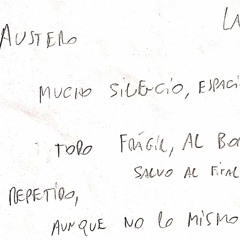 LA
AUSTERO
MUCHO SILENCIO, ESPACI
TODO FRÁGIL, AL BO
SALVO AL FINAL
REPETIDO,
AUNQUE NO LO MISMO